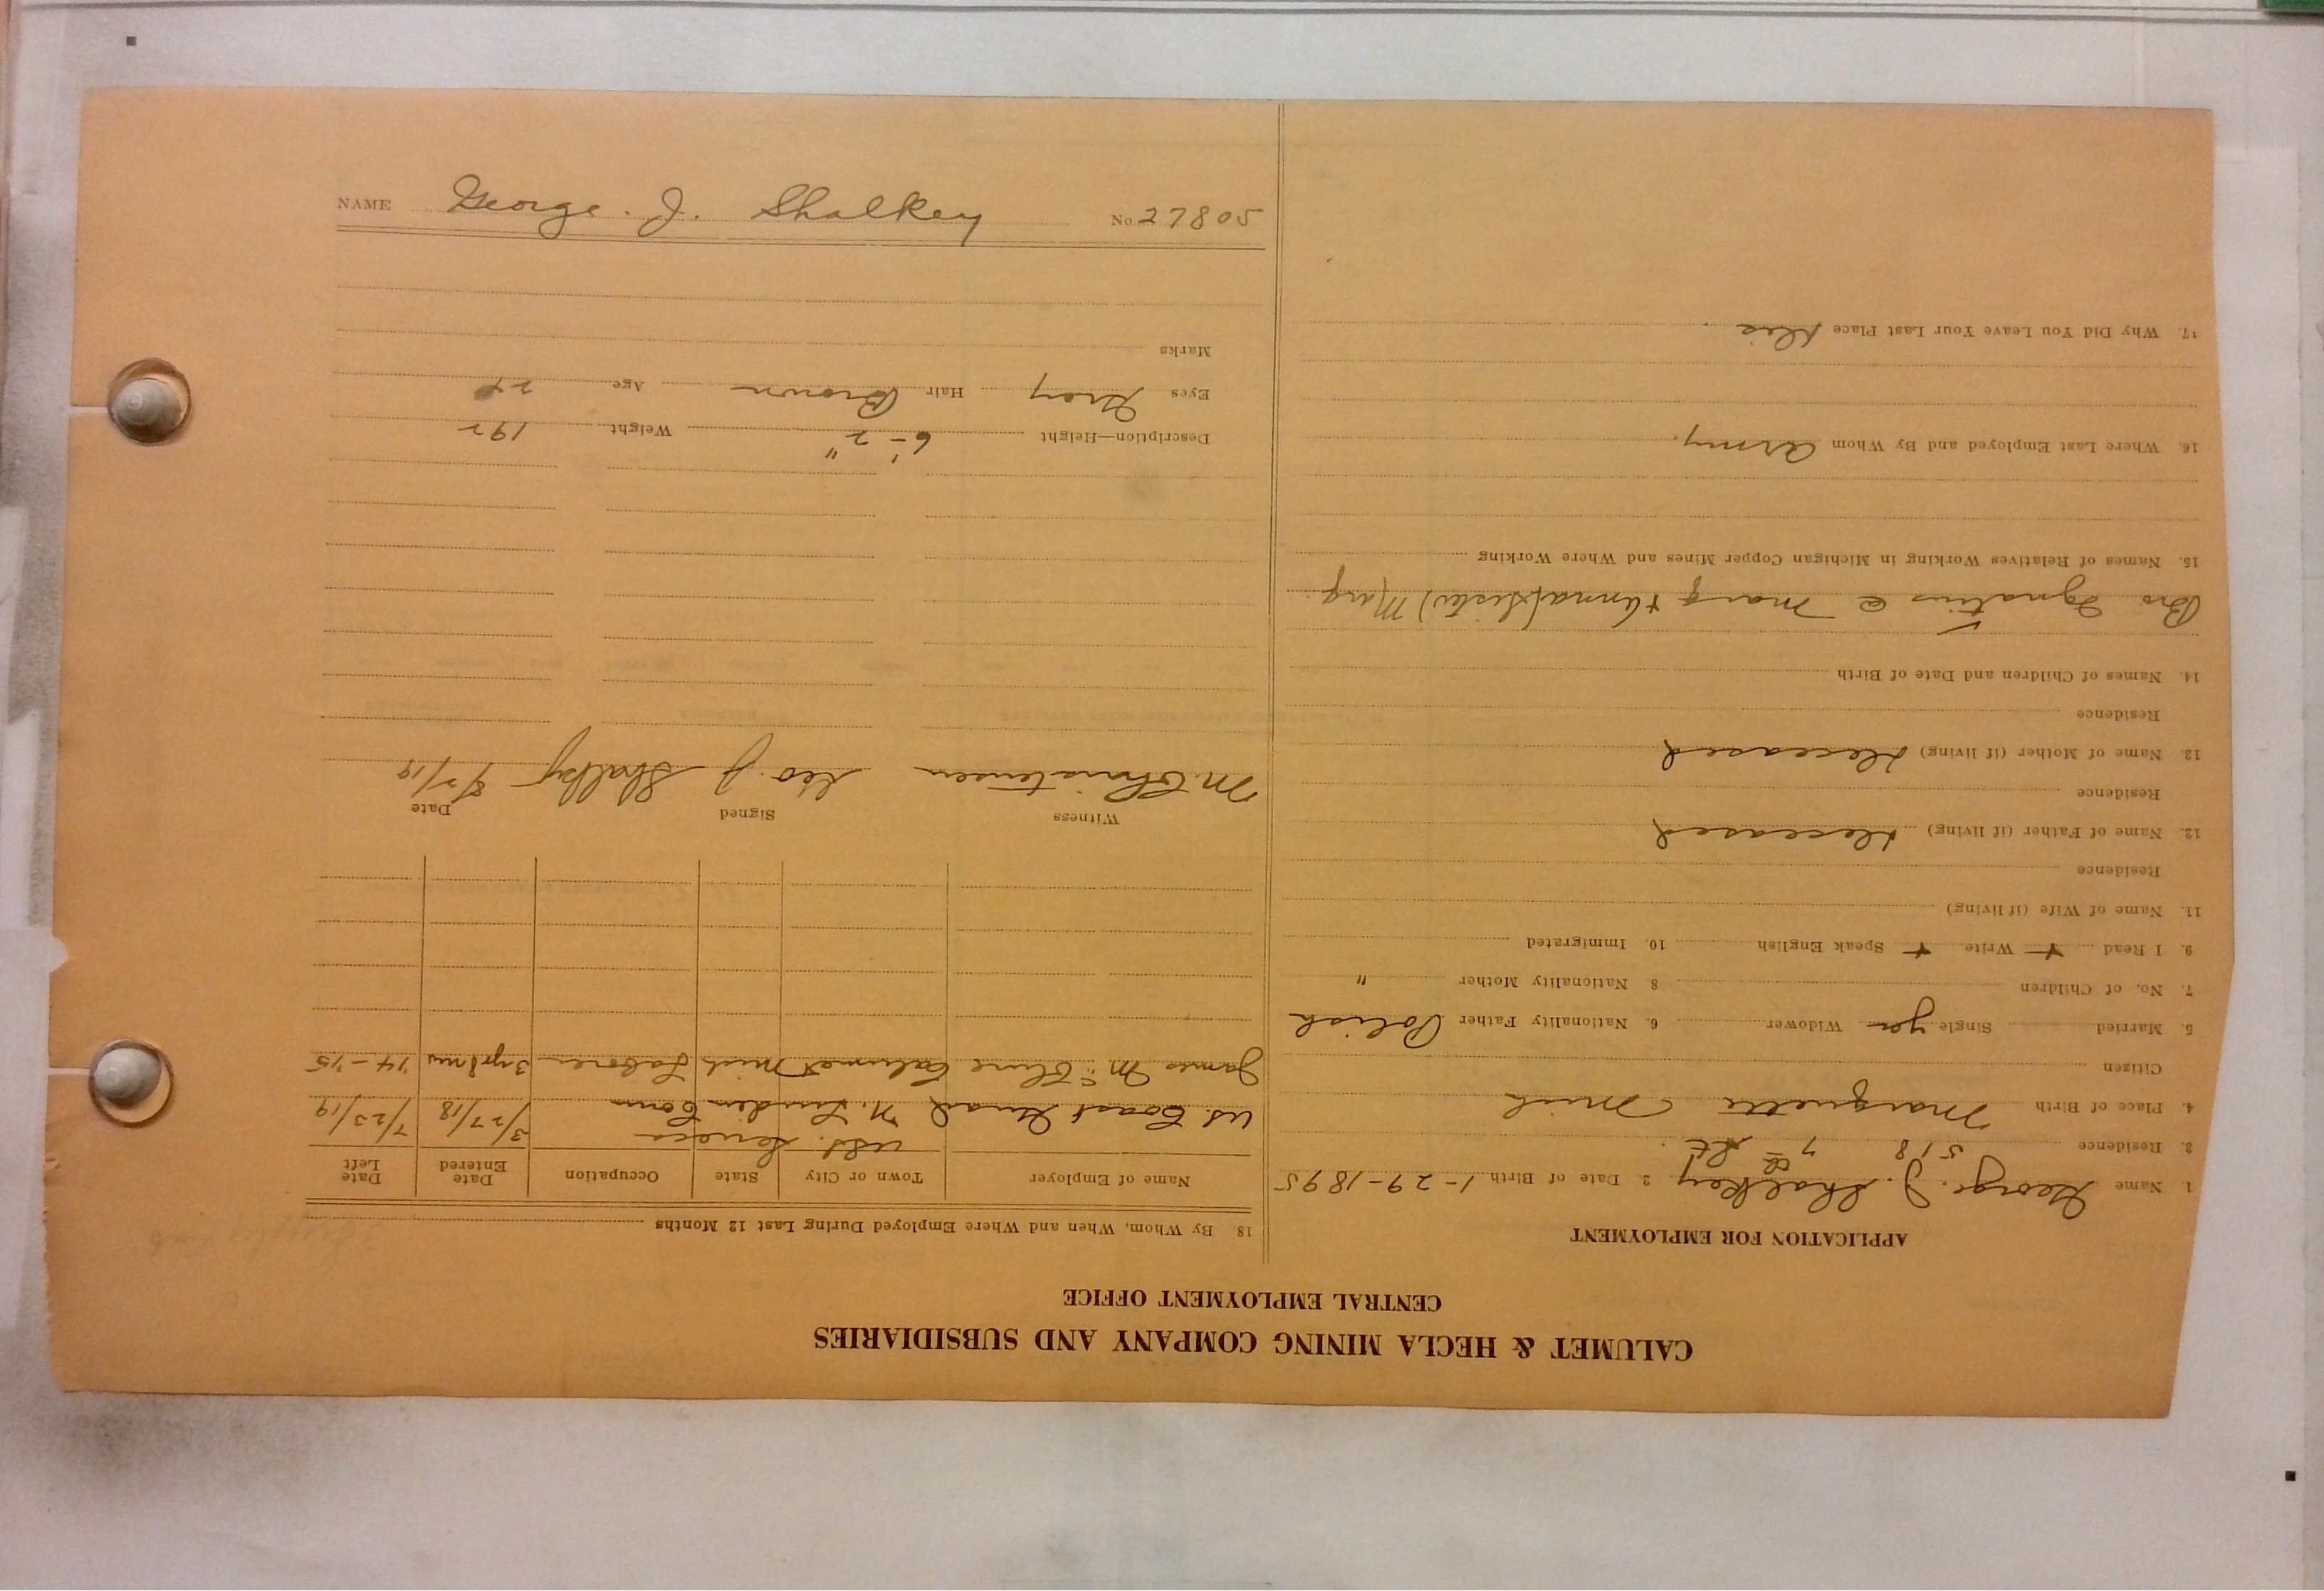 CALUMET & HECLA MINING COMPANY AND SUBSIDIARIES
CENTRAL EMPLOYMENT OFFICE
APPLICATION FOR EMPLOYMENT
1. Name George. J. Shalkey 2. Date of Birth 1-29-1895
3. Residence 518 7th St.
4. Place of Birth Marquette Mich
Citizen
5. Married Single yes Widower 6. Nationality Father Polish
7. No. of Children 8 Nationality Mother "
9. I Read + Write + Speak English 10. Immigrated
11. Name of Wife (if living)
Residence
12. Name of Father (if living) deceased
Residence
13. Name of Mother (if living) deceased
Residence
14. Names of Children and Date of Birth
Bro Ignatius @ Marq + Anna (sister) Marq.
15. Names of Relatives Working in Michigan Copper Mines and Where Working
16. Where Last Employed and By Whom Army.
17. Why Did You Leave Your Last Place dis
18. By Whom, When and Where Employed During Last 12 Months
Name of Employer Town or City State Occupation Date Entered Date Left
U.S.S. Seneca
U.S. Coast Guard N. London Conn 3/27/18 7/23/19
James Mc Clure Calumet Mich Laborer '14-'15
Witness Signed Date
M. Christensen Geo J Shalkey
Description—Height 6'-2" Weight 192
Eyes Gray Hair Brown Age 24
Marks
NAME George. J. Shalkey No. 27805